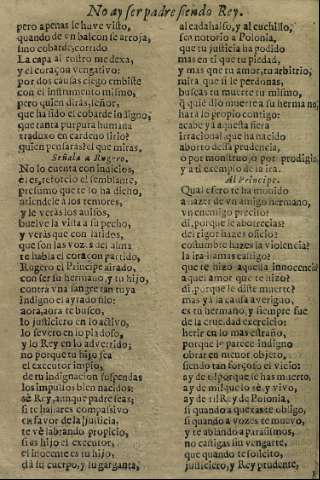 No ay ser padre siendo Rey.
pero apenas le huve visto,
quando de un balcon se arroja,
sino cobarde, corrido
La capa al rostro me dexa,
y el coraçon vengativo:
por dos causas ciego embiste
con el instrumento mismo,
pero quien dirás, señor,
que ha sido el cobarde indigno,
que tanta purpura humana
traduxo en cardeno lirio?
quien pensaràs? el que miras.
Señala a Rugero.
No lo cuenta con indicios,
 el semblante,
presumo que te lo ha dicho,
atiendele a los temores,
y le veràs los ausios,
buelve la vista a su pecho,
y veràs que con latidos,
que son las vozes del alma
te habla el coraçon partido,
Rugero el Principe airado,
con ser su hermano, y tu hijo,
contra una sangre tan tuya
indignò el ayrado filo:
aora, aora te busco,
lo justiciero en lo activo,
lo severo en lo piadoso,
y lo Rey en lo advertido;
no porque tu hijo sea
el executor impio,
de tu indignacion suspendas
los impulsos bien nacidos:
sè Rey, aunque padre seas;
si te hallares compassivo
en favor de la justicia,
te vè labrando propicio,
si es hijo el executor,
el inocente es tu hijo;
dà su cuerpo, y su garganta,
al cadahalso, y al cuchillo,
sea notorio a Polonia,
que tu justicia ha podido
mas en ti que tu piedad,
y mas que tu amor, tu arbitrio;
mira que si le perdonas,
buscas tu muerte tu mismo,
q̃ quiẽ diò muerte a su hermano,
harà lo proprio contigo:
acabe ya aquesta fiera
irracional, que ha nacido
aborto de la prudencia,
o por monstruo, o por prodigio,
y a ti exemplo de la ira.
Al Principe.
Qual esfero te ha movido
a hazer de un amigo hermano,
un enemigo preciso?
di, porque le aborrecias?
del rigor hazes oficio?
costumbre hazes la violencia?
la ira llamas castigo?
que te hizo aquella innocencia?
aquel amor que te hizo?
di, porque le diste muerte?
mas yà la causa averiguo,
es tu hermano, y siempre fue
de la crueldad exercicio:
herir en lo mas estraño,
porque le parece indigno
obrar en menor objeto,
siendo tan forçoso el vicio:
ay de el porque se ha muerto,
ay de mi que lo sè, y vivo,
ay de ti Rey de Polonia,
si quando a quexas te obligo,
si quando a vozes te muevo,
y te ablando a parasismos,
no castigas sin vengarte,
que quando te solicito,
justiciero, y Rey prudente,